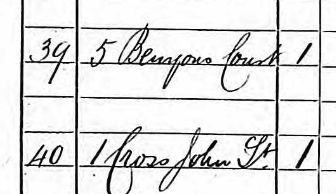 39 5 Bensons Court 1
40 1 Cross John St. 1